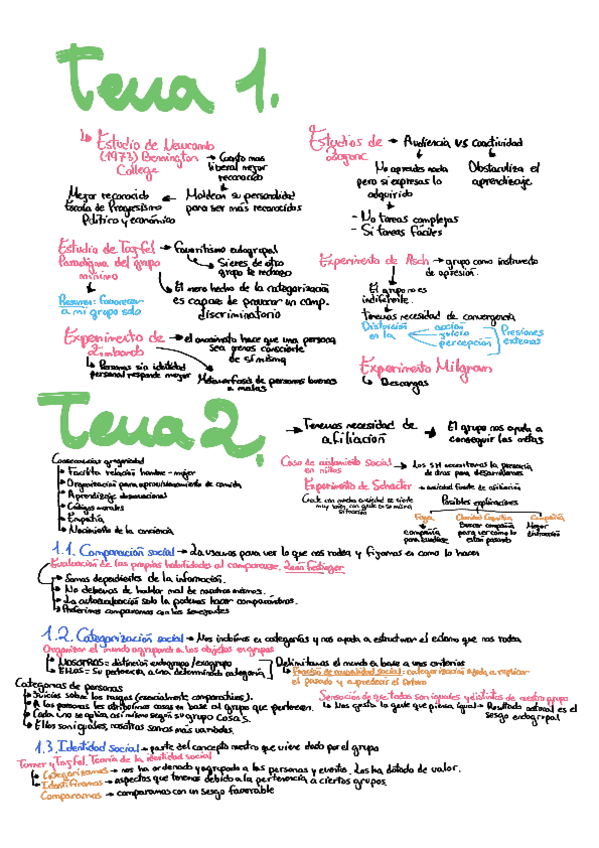 Tema 1.
↳ Estudio de Newcomb
(1973) Bennington
College
→ Cuanto mas
liberal mejor
reconocido
Moldean su personalidad
para ser más reconocidas
Mejor reconocido
Escala de Progresismo
Político y económico
Estudios de
Zajonc
→ Audiencia vs coactividad
No aprendes nada
pero si expresas lo
adquirido
- No tareas complejas
- Si tareas fáciles
Obstaculiza el
aprendizaje
Estudio de Tajfel
Paradigma del grupo
mínimo
→ Favoritismo endogrupal
Si eres de otro
grupo te rechazo
El mero hecho de la categorización
es capaz de provocar un comp.
discriminatorio
Resumen: favorecer
a mi grupo solo
Experimento de Asch
→ grupo como instrumento
de opresión.
El grupo no es
indiferente.
Tenemos necesidad de convergencia
Distorsión
en la
acción
juicio
percepción
Presiones
externas
Experimento de
Zimbardo
→ el anonimato hace que una persona
sea menos consciente
de sí misma
↳ Personas sin identidad
personal responde mayor
Metamorfosis de personas buenas
a malas
Experimento Milgram
↳ Descargas
Tema 2.
→ Tenemos necesidad de
afiliación
→ El grupo nos ayuda a
conseguir las metas
Consecuencias gregariedad
Facilita relación hombre - mujer
Organización para aprovisionamiento de comida
Aprendizaje observacional
Códigos morales
Empatía
Nacimiento de la conciencia
Caso de aislamiento social
en niños
→ Los SH necesitamos la presencia
de otros para desarrollarnos
Experimento de Schachter
→ ansiedad fuente de afiliación
Posibles explicaciones
Fuga
compañía
para
Claridad Cognitiva
Buscar compañía
para ver como lo
están pasando
Compañía
Mayor
1.1. Comparación social → La usamos para ver lo que nos rodea y fijarnos en como lo hacen
Evaluación de las propias habilidades al compararse. León Festinger
Somos dependientes de la información.
No debemos de hablar mal de nosotros mismos.
La autoevaluación solo la podemos hacer comparándonos.
Preferimos compararnos con los semejantes
1.2. Categorización social → Nos incluimos en categorías y nos ayuda a estructurar el entorno que nos rodea
Organizar el mundo agrupando a los objetos en grupos
NOSOTROS = distinción endogrupo/exogrupo
ELLOS = su pertenencia a una determinada categoría
Delimitamos el mundo en base a unos criterios
↳ Función de causalidad social: categorización ayuda a explicar
el pasado y a predecir el futuro
Categorías de personas
Juicios sobre los rasgos (esencialmente comparativos).
A las personas les atribuimos cosas en base al grupo que pertenecen.
Cada uno se aplica así mismo según su grupo cosas.
Ellos son iguales, nosotros somos más variados.
Sensación de que todos son iguales y distintos de nuestro grupo
↳ Nos gusta la gente que piensa igual → Resultado actual es el
sesgo endogrupal
1.3. Identidad social → parte del concepto nuestro que viene dado por el grupo
Turner y Tajfel. Teoría de la identidad social
Categorizamos → nos ha ordenado y agrupado a las personas y eventos. Les ha dotado de valor.
Identificamos → aspectos que tenemos debido a la pertenencia a ciertos grupos.
Comparamos → comparamos con un sesgo favorable